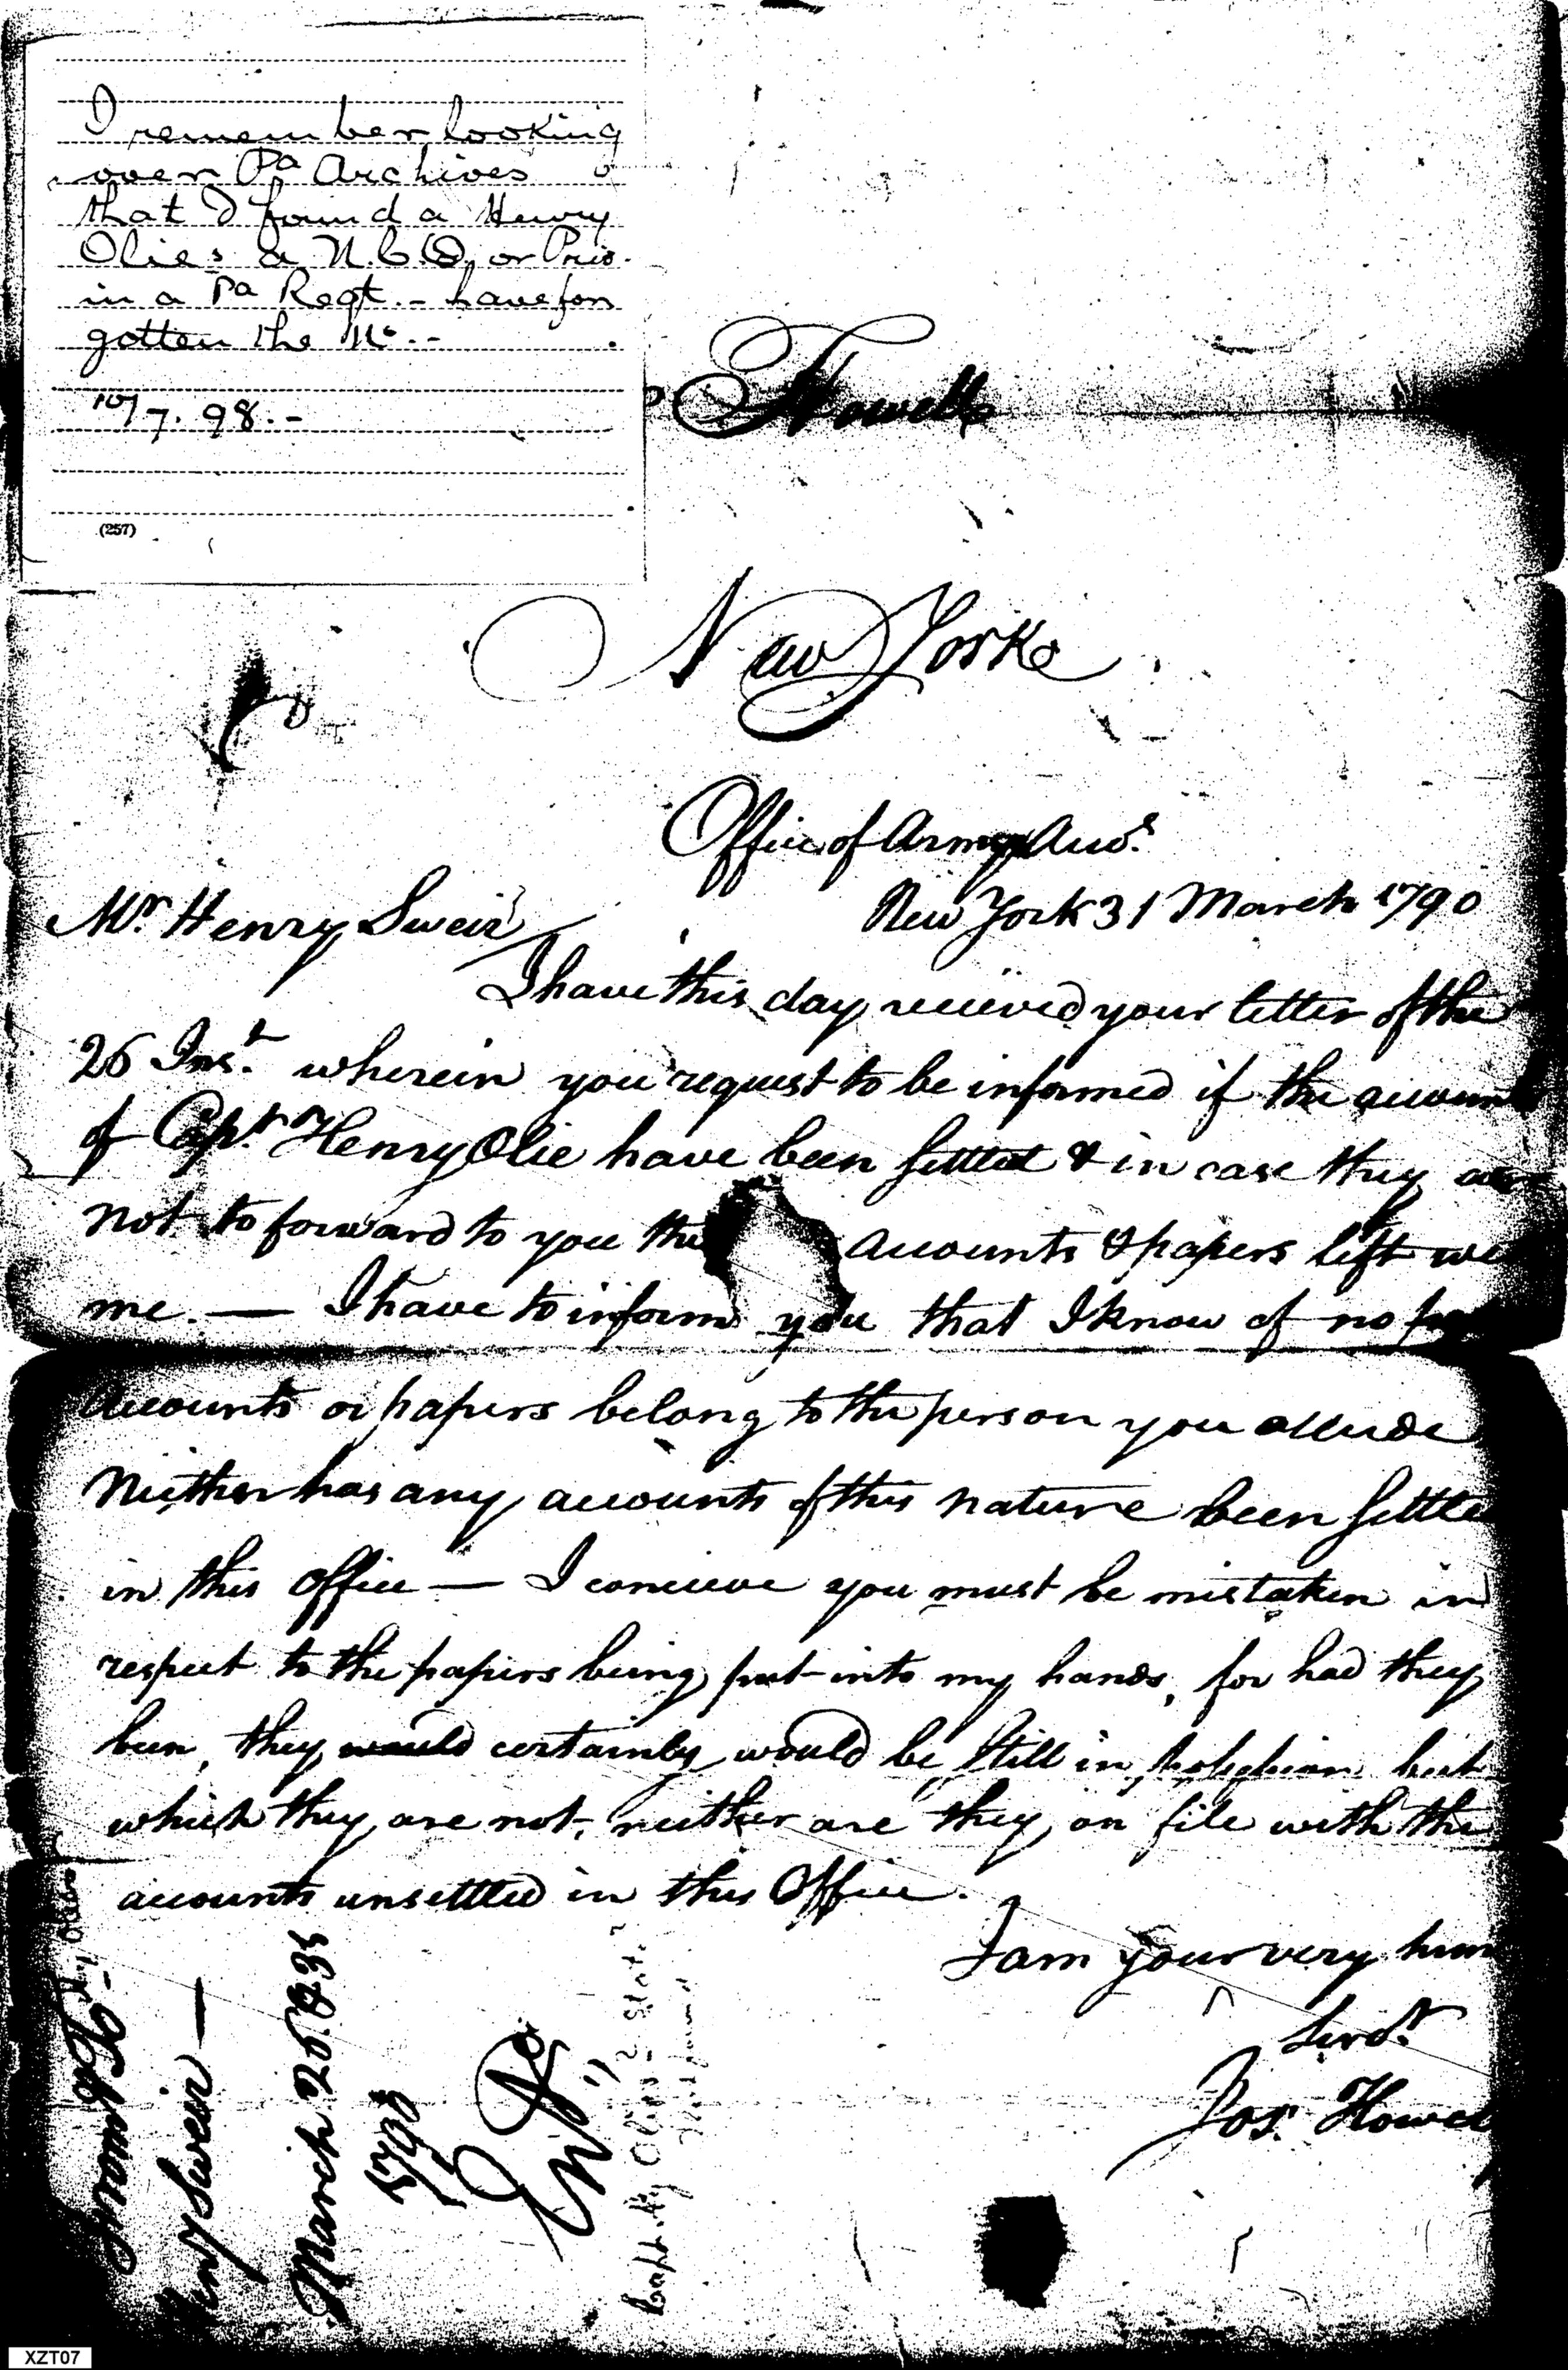 I remember looking
over Pa Archives
that I found a Henry
Olies a N.C.O. or Priv.
in a Pa Regt. - have for
gotten the No. -
10/7. 98. -
(257)
Howell
New York
Office of Army Acco.s
New York 31 March 1790
Mr. Henry Sweir
I have this day received your letter of the
26 Inst. wherein you request to be informed if the account
of Capt. Henry Olie have been settled & in case they are
not to forward to you the accounts & papers left
me. — I have to inform you that I know of no
accounts or papers belong to the person you allude
Neither has any accounts of this nature been settle
in this office — I conceive you must be mistaken in
respect to the papers being put into my hands, for had they
been, they would certainly would be still in but
which they are not, neither are they on file with the
accounts unsettled in this Office.
I am your very hum
Servt.
Jos. Howel
From
Sweir —
March 26
1790
Capt. Hy Olies State
XZT07